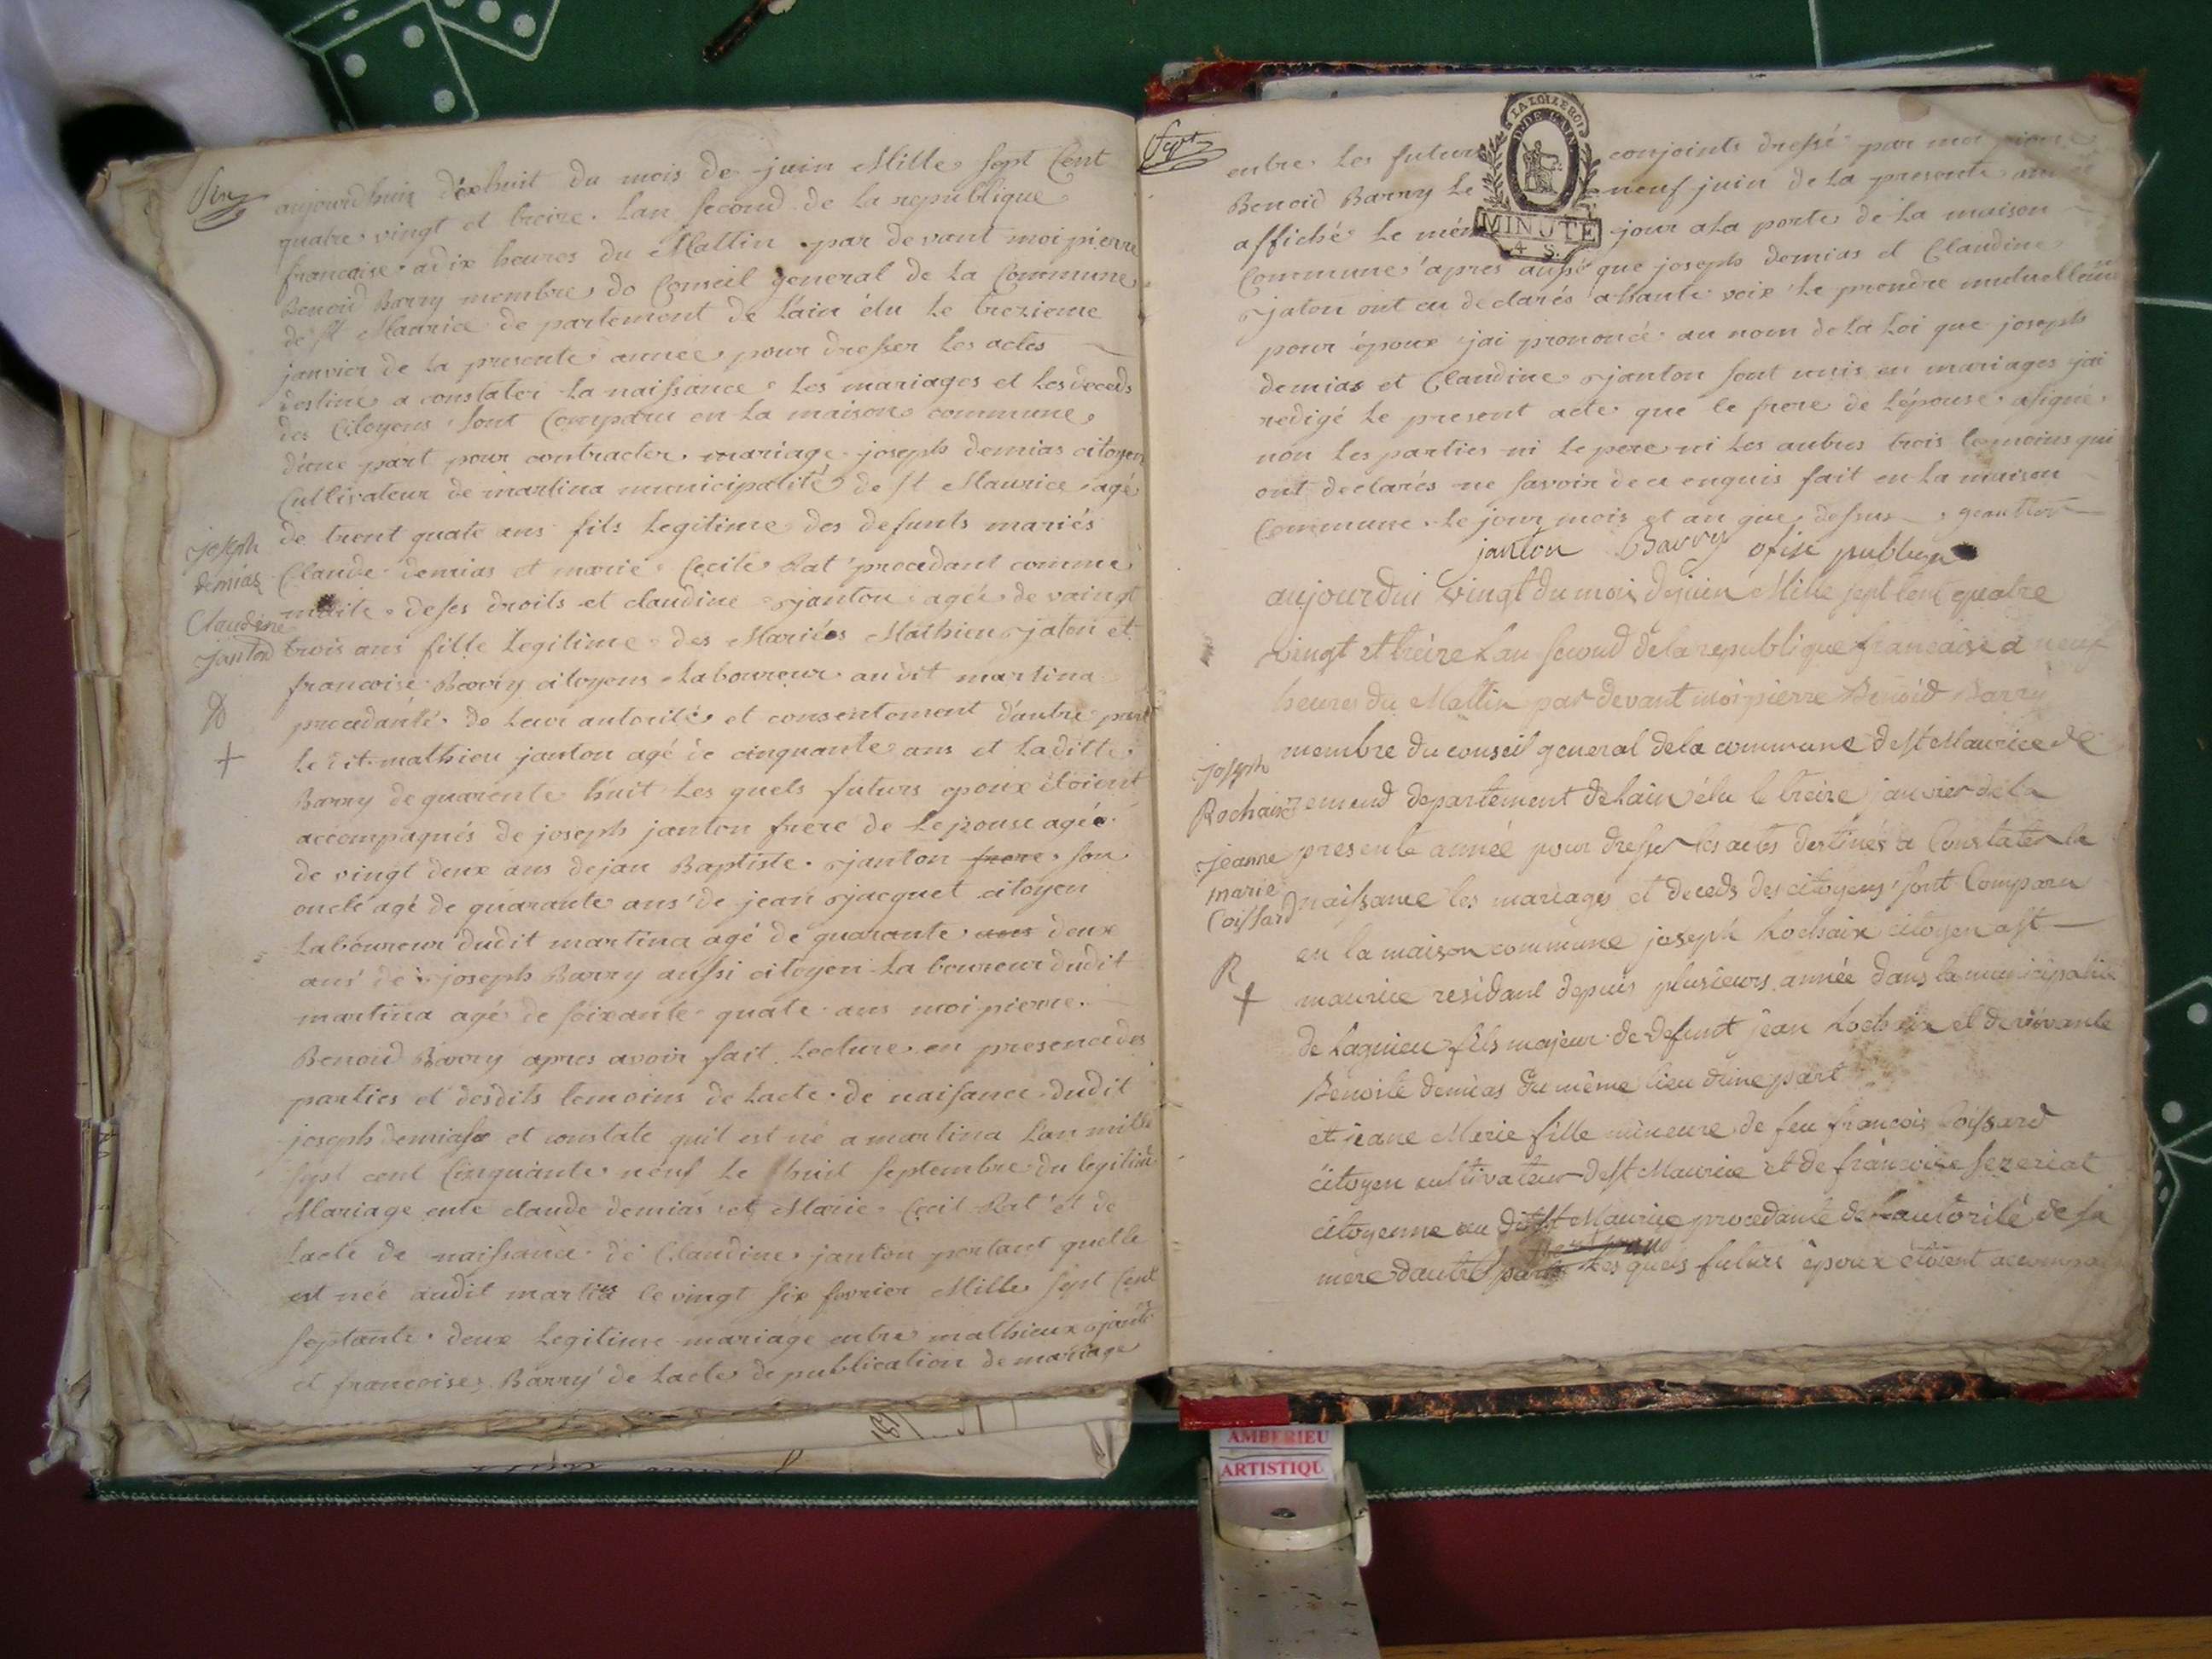 aujourdhuiz dixhuit du mois de juin Mille sept Cent
quatre vingt et treize. Lan second de la republique
francaise. a dix heures du Mattin. par devant moi pierre
Benoid Barry membre do Conseil general de la Commune
de st Maurice de partement de Lain élu le trezieme
janvier de la presente année pour dresser les actes
destiné a constater la naissance. les mariages et les deceds
des Citoyens sont Comparu en la maison commune
d'une part pour contracter. mariage. joseph demias citoyen
Cultivateur de martina municipalité de st Maurice agé
de trent quate ans fils legitime des defunts mariés
joseph
demias
Claudine
janton
Claude demias et marie Cecile Rat procedant comme
de ses droits et claudine janton agée de vaingt
trois ans fille legitime des Mariées Mathieu jaton et
francoise Barry citoyens Laboureur audit martina
procedante de leur autorité et consentement d'autre part
+
le dit mathieu janton agé de cinquante ans et la ditte
Barry de quarente huit les quels futurs epoux étoient
accompagnés de joseph janton frere de Lepouse agée
de vingt deux ans de jan Baptiste janton frere son
oncle agé de quarante ans de jean jacquet citoyen
Laboureur dudit martina agé de quarante ans deux
ans de joseph Barry aussi citoyen La boureur dudit
martina agé de soixante quate ans moi pierre
Benoid Barry apres avoir fait Lecture en presence des
parties et desdits temoins de Lacte de naisance dudit
joseph demias et constate quil est né a martina Lan mille
sept cent Cinquante neuf le huit septembre du legitime
Mariage ente claude demias et Marie Cecil Rat et de
Lacte de naissance de Claudine janton portant quelle
est née audit martina le vingt six fevrier Mille sept Cent
septante deux Legitime mariage entre mathieux janton
et francoise Barry de Lacte de publication de mariage
Sept
entre les futurs conjoints dressé par moi pierre
Benoid Barry le neuf juin de la presente année
affiché le même jour a La porte de la maison
LA LOI LE ROI
MINUTE
4 S.
Commune apres aussi que joseph demias et Claudine
jaton ont eu declarés a haute voix le prendre mutuellement
pour époux jai prononcé au nom de la Loi que joseph
demias et Claudine janton sont unis en mariages jai
redigé le present acte que le frere de Lépouse asigné
non les parties ni le pere ni les autres trois temoins qui
ont declarés ne savoir de ce enquis fait en la maison
Commune le jour mois et an que dessus
janton Barry ofise publiqe
aujourdui vingt du mois dejuin Mille sept cent quatre
vingt et treize Lan second de la republique francaise a neuf
heures du Mattin par devant moi pierre Benoid Barry
membre du conseil general de la commune de st Maurice de
joseph
Rochaix
remend departement de Lain élu le treize janvier de la
jeanne
marie
Coissard
presente année pour dresser les actes destinés a Constater la
naissance les mariages et deceds des citoyens sont Comparu
en la maison commune joseph Rochaix citoyen a st
R
+
maurice residant depuis plusieurs année dans la municipalité
de Lagnieu fils majeur de defunt jean Rochaix et de vivante
Benoite demias du même lieu dune part
et jeane Marie fille mineure de feu francois Coissard
citoyen cultivateur de st Maurice et de francoise sezeriat
citoyenne au dit st Maurice procedante de Lautorité de sa
mere dautre part Les quels futurs époux étoient acompa
AMBERIEU
ARTISTIQU